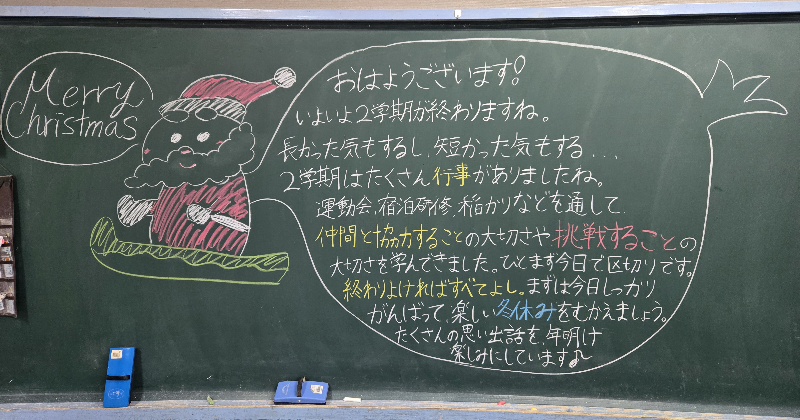 Merry
Christmas
おはようございます!
いよいよ2学期が終わりますね。
長かった気もするし、短かった気もする...
2学期はたくさん行事がありましたね。
運動会、宿泊研修、稲かりなどを通して、
仲間と協力することの大切さや、挑戦することの
大切さを学んできました。ひとまず今日で区切りです。
終わりよければすべてよし。まずは今日しっかり
がんばって、楽しい冬休みをむかえましょう。
たくさんの思い出話を、年明け
楽しみにしています♪